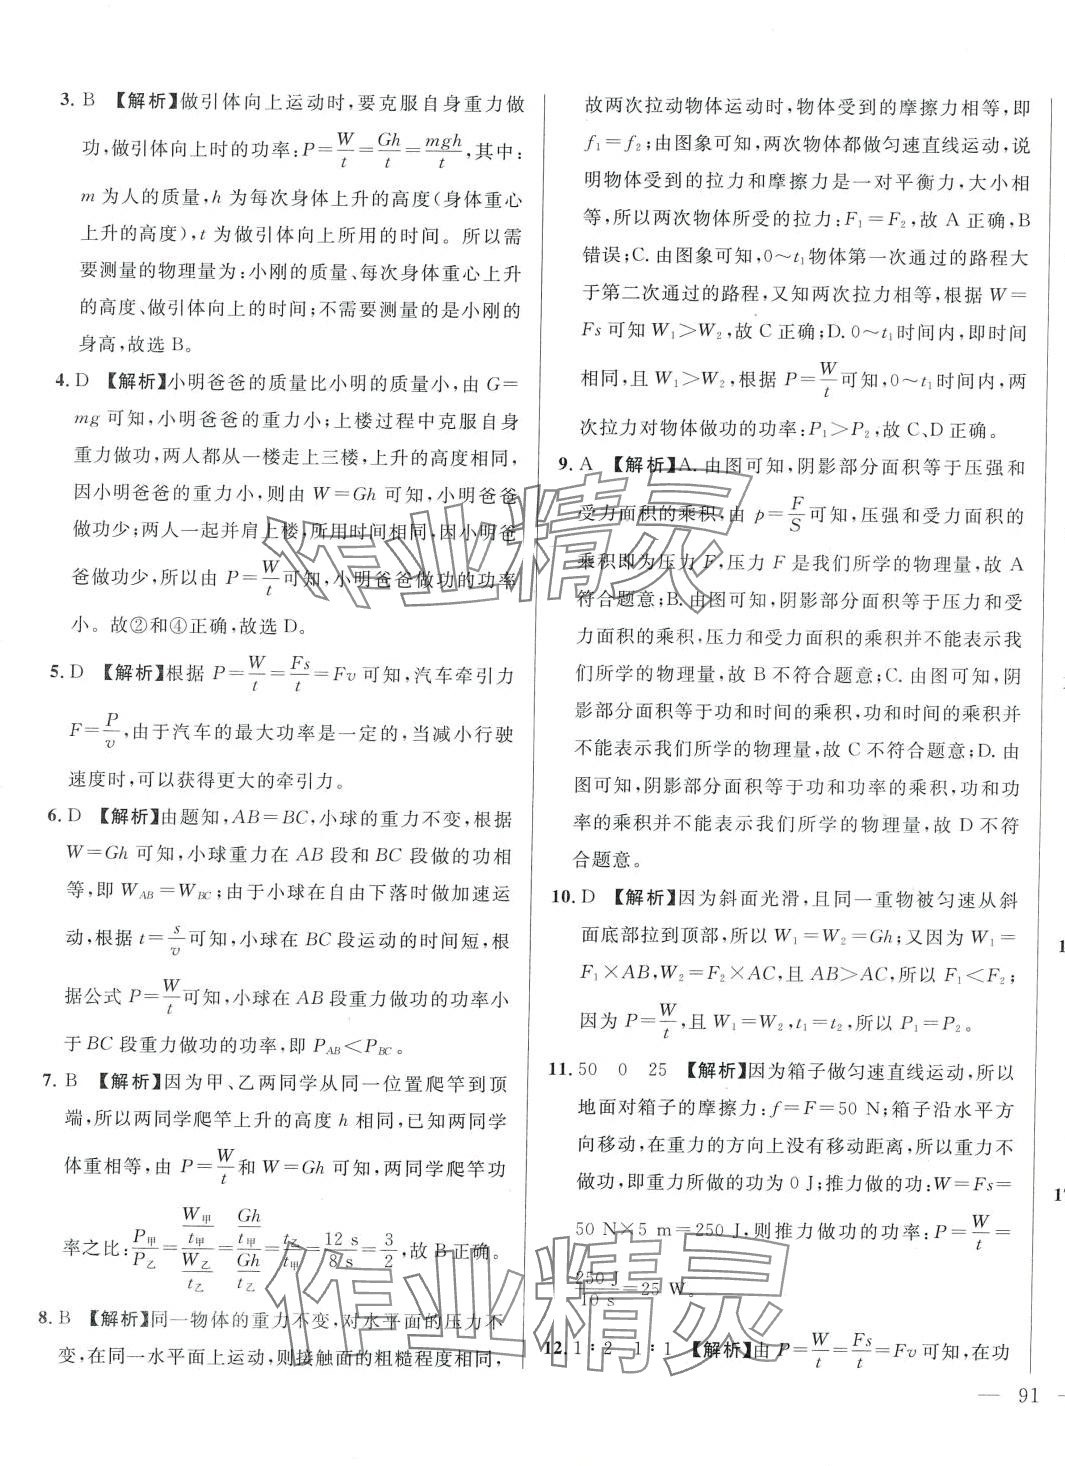 3. B 【解析】做引体向上运动时,要克服自身重力做
功,做引体向上时的功率:P=W/t=Gh/t=mgh/t,其中:
m 为人的质量,h 为每次身体上升的高度(身体重心
上升的高度),t 为做引体向上所用的时间。所以需
要测量的物理量为:小刚的质量、每次身体重心上升
的高度、做引体向上的时间;不需要测量的是小刚的
身高,故选 B。
4. D 【解析】小明爸爸的质量比小明的质量小,由 G=
mg 可知,小明爸爸的重力小;上楼过程中克服自身
重力做功,两人都从一楼走上三楼,上升的高度相同,
因小明爸爸的重力小,则由 W=Gh 可知,小明爸爸
做功少;两人一起并肩上楼,所用时间相同,因小明爸
爸做功少,所以由 P=W/t可知,小明爸爸做功的功率
小。故②和④正确,故选 D。
5. D 【解析】根据 P=W/t=Fs/t=Fv 可知,汽车牵引力
F=P/v,由于汽车的最大功率是一定的,当减小行驶
速度时,可以获得更大的牵引力。
6. D 【解析】由题知,AB=BC,小球的重力不变,根据
W=Gh 可知,小球重力在 AB 段和 BC 段做的功相
等,即 W_AB=W_BC;由于小球在自由下落时做加速运
动,根据 t=s/v可知,小球在 BC 段运动的时间短,根
据公式 P=W/t可知,小球在 AB 段重力做功的功率小
于 BC 段重力做功的功率,即 P_AB<P_BC。
7. B 【解析】因为甲、乙两同学从同一位置爬竿到顶
端,所以两同学爬竿上升的高度 h 相同,已知两同学
体重相等,由 P=W/t和 W=Gh 可知,两同学爬竿功
率之比:P甲/P乙=(W甲/t甲)/(W乙/t乙)=(Gh/t甲)/(Gh/t乙)=t乙/t甲=12 s/8 s=3/2,故 B 正确。
8. B 【解析】同一物体的重力不变,对水平面的压力不
变,在同一水平面上运动,则接触面的粗糙程度相同,
故两次拉动物体运动时,物体受到的摩擦力相等,即
f₁=f₂;由图象可知,两次物体都做匀速直线运动,说
明物体受到的拉力和摩擦力是一对平衡力,大小相
等,所以两次物体所受的拉力:F₁=F₂,故 A 正确,B
错误;C. 由图象可知,0～t₁物体第一次通过的路程大
于第二次通过的路程,又知两次拉力相等,根据 W=
Fs 可知 W₁>W₂,故 C 正确;D. 0～t₁时间内,即时间
相同,且 W₁>W₂,根据 P=W/t可知,0～t₁时间内,两
次拉力对物体做功的功率:P₁>P₂,故 C、D 正确。
9. A 【解析】A. 由图可知,阴影部分面积等于压强和
受力面积的乘积,由 p=F/S可知,压强和受力面积的
乘积即为压力 F,压力 F 是我们所学的物理量,故 A
符合题意;B. 由图可知,阴影部分面积等于压力和受
力面积的乘积,压力和受力面积的乘积并不能表示我
们所学的物理量,故 B 不符合题意;C. 由图可知,阴
影部分面积等于功和时间的乘积,功和时间的乘积并
不能表示我们所学的物理量,故 C 不符合题意;D. 由
图可知,阴影部分面积等于功和功率的乘积,功和功
率的乘积并不能表示我们所学的物理量,故 D 不符
合题意。
10. D 【解析】因为斜面光滑,且同一重物被匀速从斜
面底部拉到顶部,所以 W₁=W₂=Gh;又因为 W₁=
F₁×AB,W₂=F₂×AC,且 AB>AC,所以 F₁<F₂;
因为 P=W/t,且 W₁=W₂,t₁=t₂,所以 P₁=P₂。
11. 50 0 25 【解析】因为箱子做匀速直线运动,所以
地面对箱子的摩擦力:f=F=50 N;箱子沿水平方
向移动,在重力的方向上没有移动距离,所以重力不
做功,即重力所做的功为 0 J;推力做的功:W=Fs=
50 N×5 m=250 J,则推力做功的功率:P=W/t=
250 J/10 s=25 W。
12. 1∶2 1∶1 【解析】由 P=W/t=Fs/t=Fv 可知,在功
— 91
作业精灵
作业精灵